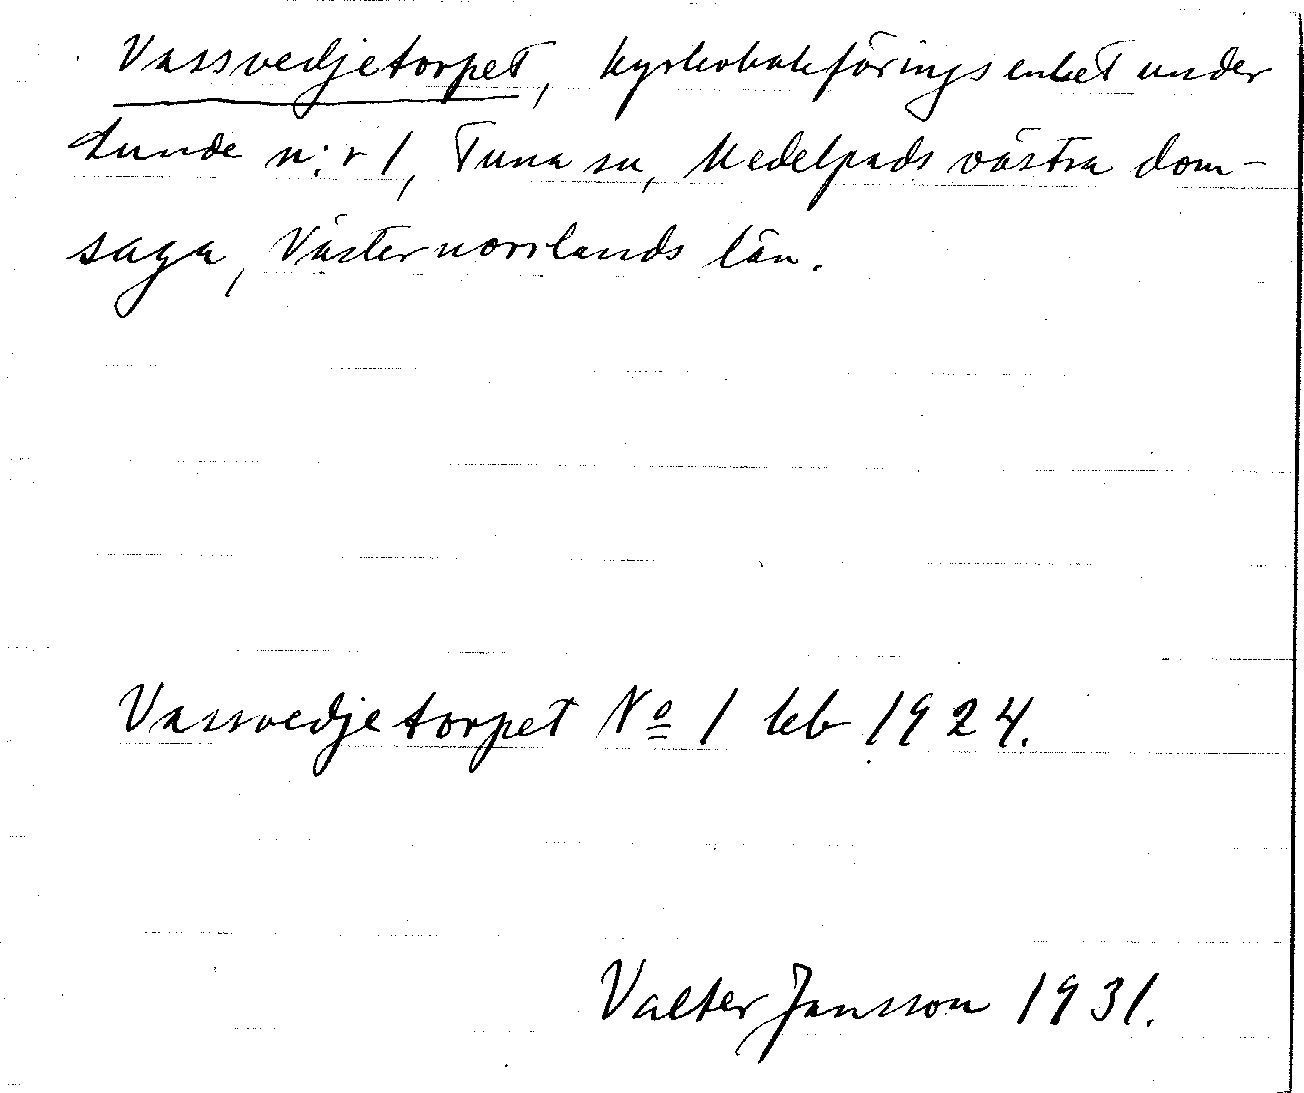 Vassvedjetorpet, kyrkobokföringsenhet under
Lunde n:r 1, Tuna sn, Medelpads västra dom-
saga, Västernorrlands län.
Vassvedjetorpet No 1 kb 1924.
Valter Jansson 1931.